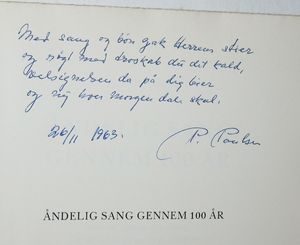 Med sang og bøn gak Herrens veje
og røgt med troskab du dit kald,
velsignelsen da på dig
og ny hver morgen dale skal.
26/11 1963. P. Poulsen
ÅNDELIG SANG GENNEM 100 ÅR